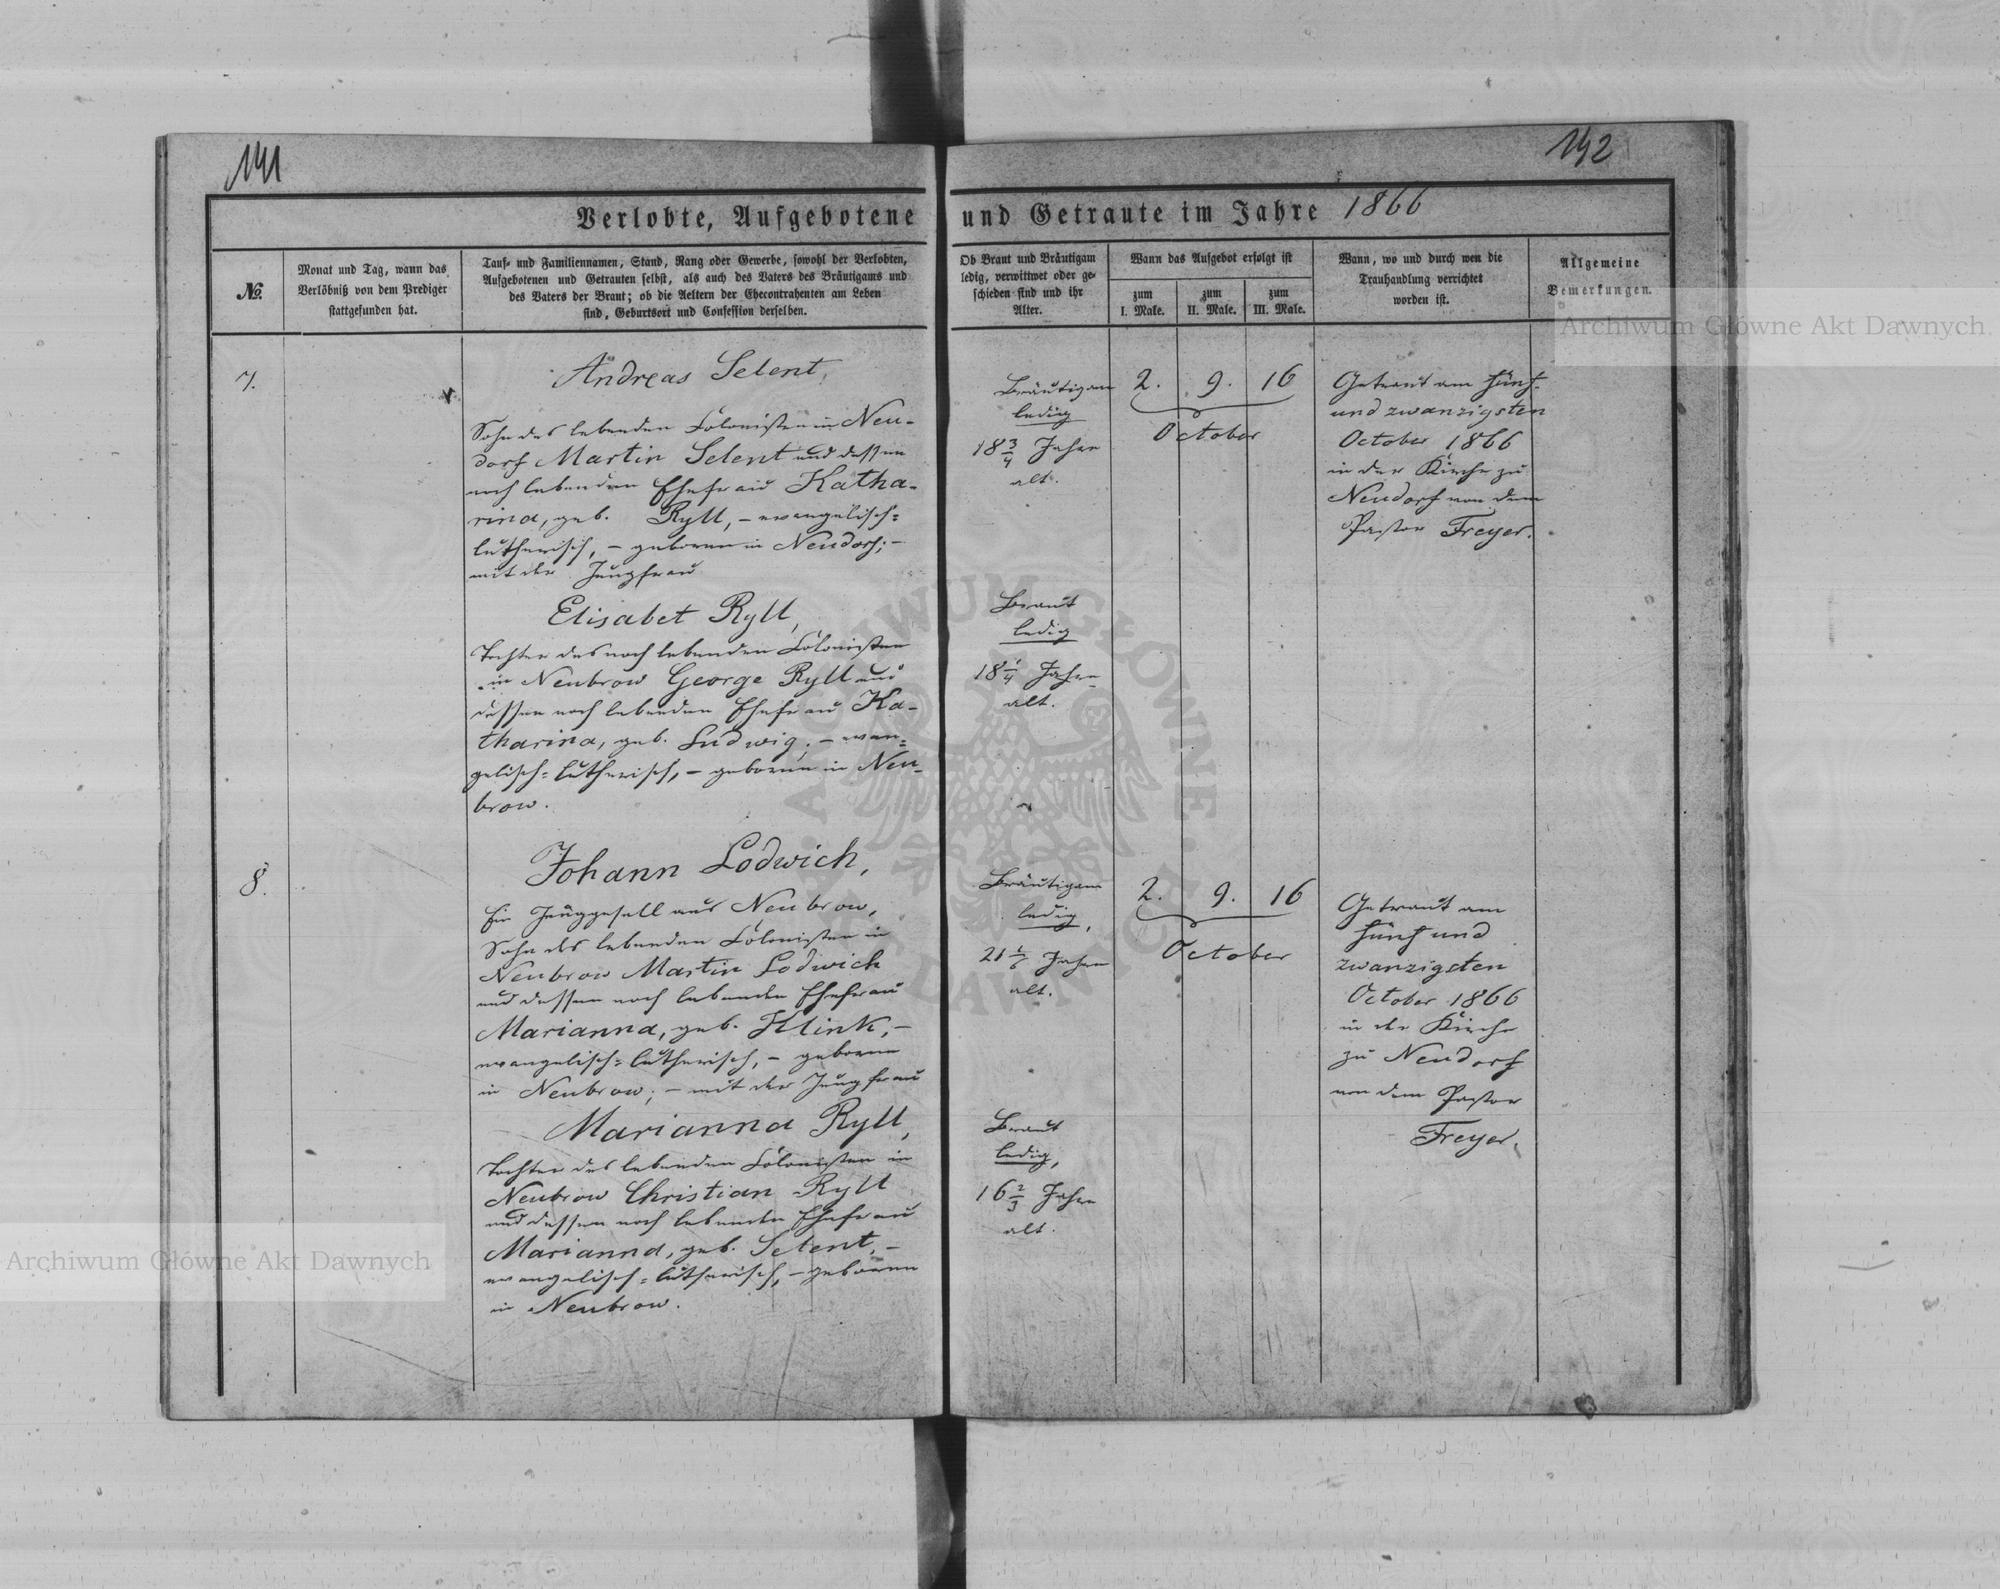 141
142
Verlobte, Aufgebotene und Getraute im Jahre 1866
№.
Monat und Tag, wann das
Verlöbniß von dem Prediger
stattgefunden hat.
Tauf= und Familiennamen, Stand, Rang oder Gewerbe, sowohl der Verlobten,
Aufgebotenen und Getrauten selbst, als auch des Vaters des Bräutigams und
des Vaters der Braut; ob die Aeltern der Ehecontrahenten am Leben
sind, Geburtsort und Confession derselben.
Ob Braut und Bräutigam
ledig, verwittwet oder ge=
schieden sind und ihr
Alter.
Wann das Aufgebot erfolgt ist
zum
I. Male.
zum
II. Male.
zum
III. Male.
Wann, wo und durch wen die
Trauhandlung verrichtet
worden ist.
Allgemeine
Bemerkungen.
7.
Andreas Selent,
Sohn des lebenden Colonisten in Neu-
dorf Martin Selent und dessen
noch lebenden Ehefrau Katha-
rina, geb. Ryll, – evangelisch=
lutherisch, – geboren in Neudorf; –
mit der Jungfrau
Elisabet Ryll,
Tochter des noch lebenden Colonisten
in Neubrow George Ryll und
dessen noch lebenden Ehefrau Ka-
tharina, geb. Ludwig, – evan=
gelisch=lutherisch, – geboren in Neu-
brow.
Bräutigam
ledig
18 3/4 Jahre
alt.
Braut
ledig
18 1/4 Jahre
alt.
2. 9. 16
October
Getraut am fünf-
und zwanzigsten
October 1866
in der Kirche zu
Neudorf von dem
Pastor Freyer.
8.
Johann Lodwich,
Ein Junggesell aus Neubrow,
Sohn des lebenden Colonisten in
Neubrow Martin Lodwich
und dessen noch lebenden Ehefrau
Marianna, geb. Klink, –
evangelisch=lutherisch, – geboren
in Neubrow; – mit der Jungfrau
Marianna Ryll,
Tochter des lebenden Colonisten in
Neubrow Christian Ryll
und dessen noch lebenden Ehefrau
Marianna, geb. Selent, –
evangelisch=lutherisch, – geboren
in Neubrow.
Bräutigam
ledig,
21 Jahre
alt.
Braut
ledig,
16 2/3 Jahre
alt.
2. 9. 16
October
Getraut am
fünf und
zwanzigsten
October 1866
in der Kirche
zu Neudorf
von dem Pastor
Freyer.
Archiwum Główne Akt Dawnych
Archiwum Główne Akt Dawnych
ARCHIWUM GŁÓWNE AKT DAWNYCH